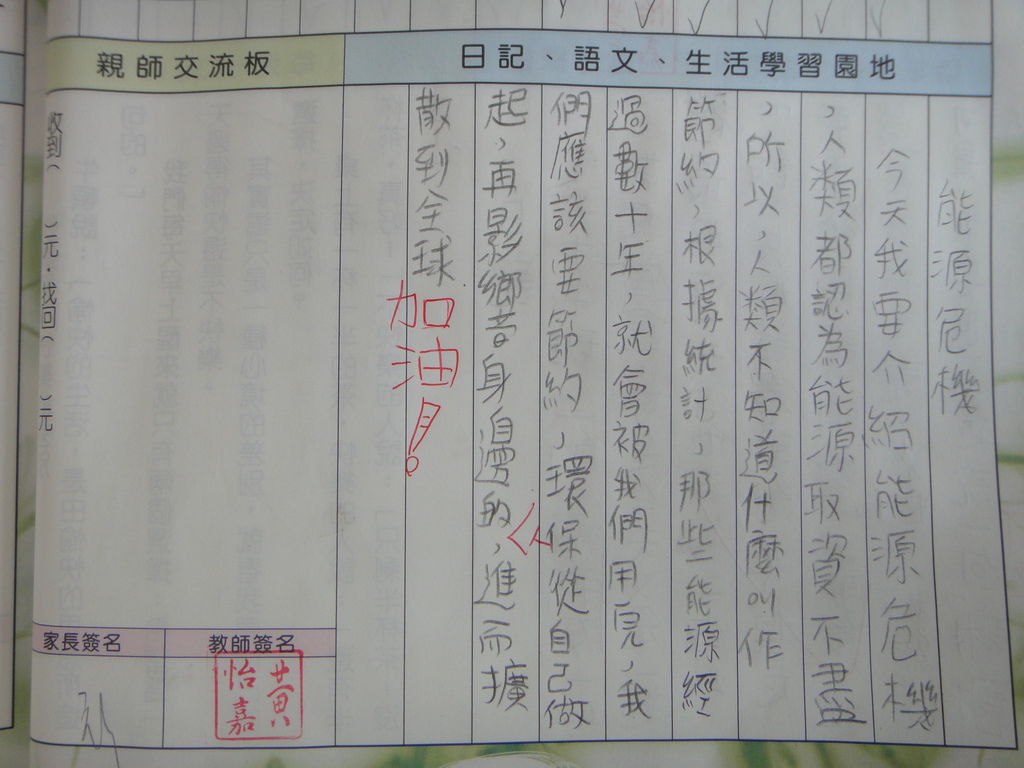 日記、語文、生活學習園地
能源危機
今天我要介紹能源危機
，人類都認為能源取資不盡
，所以，人類不知道什麼叫作
節約，根據統計，那些能源經
過數十年，就會被我們用完，我
們應該要節約，環保從自己做
起，再影鄉音身邊的人，進而擴
散到全球
加油！
親師交流板
收到（ ）元，找回（ ）元
教師簽名
黃怡嘉
家長簽名